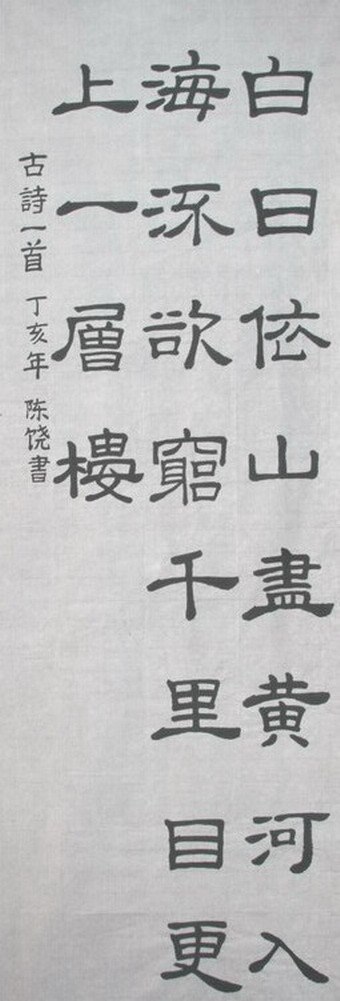 白日依山盡黄河入
海流欲窮千里目更
上一層樓
古詩一首 丁亥年 陈饶書